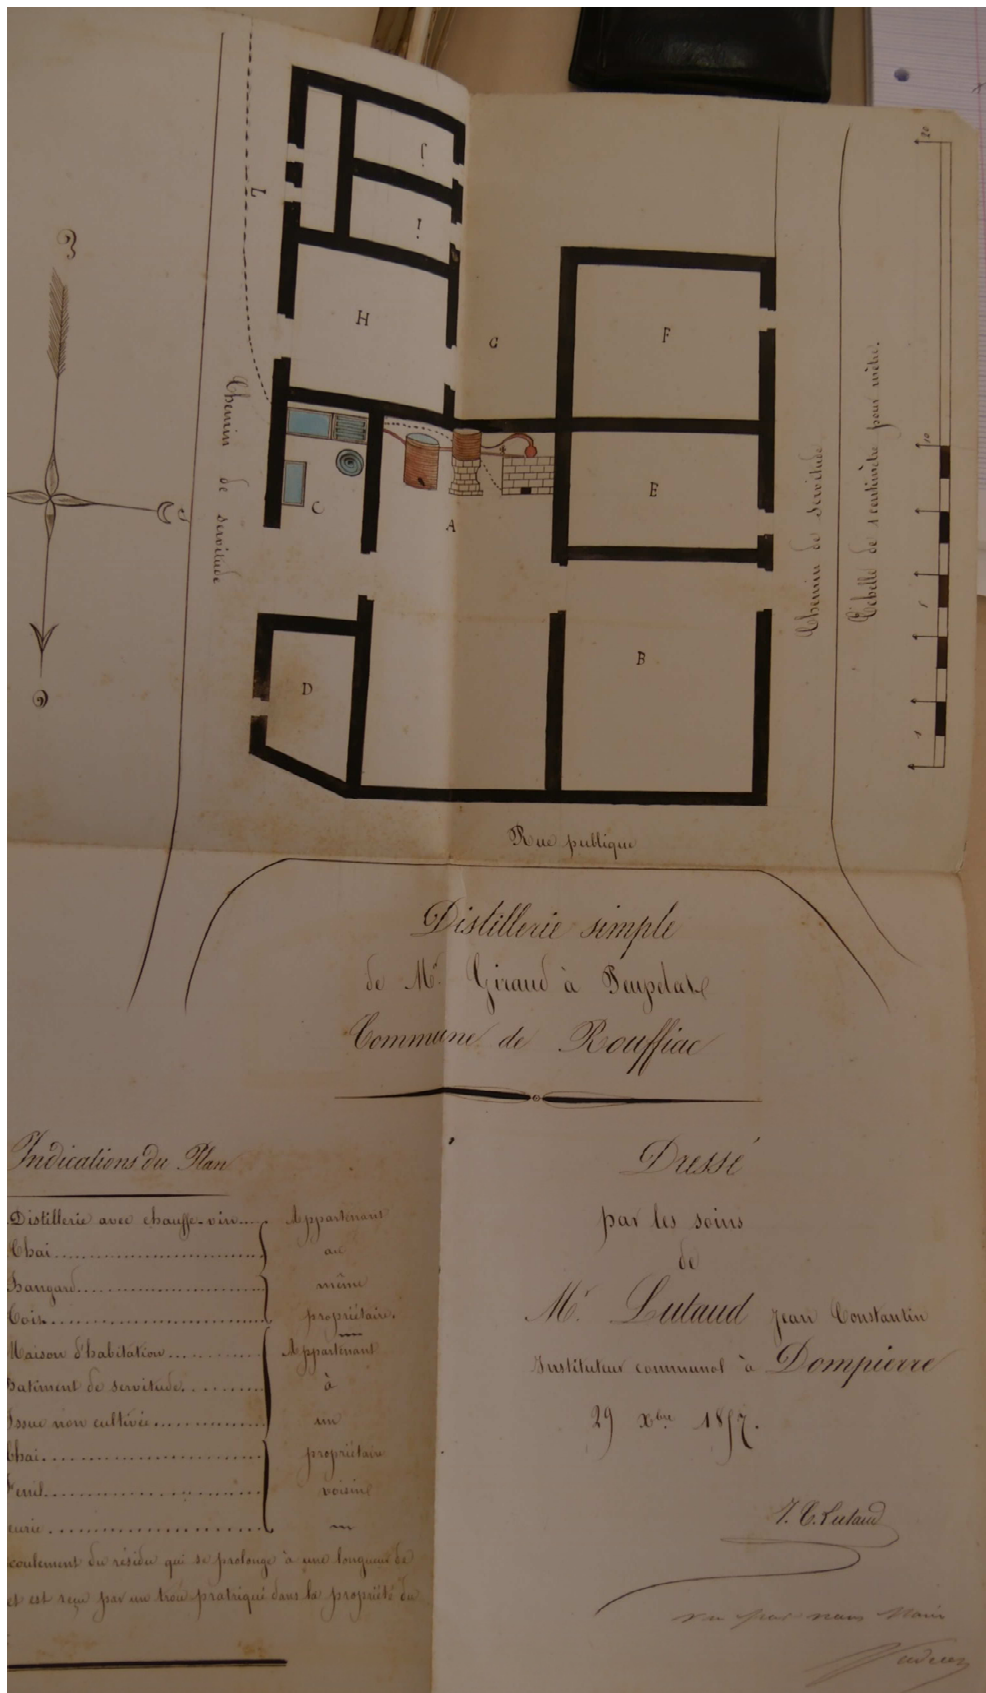 20
L
J
I
H
G
F
10
E
C
A
B
D
Chemin de servitude
Chemin de servitude
Echelle de 1 centimètre pour mètre.
Rue publique
Distillerie simple
de Mr. Giraud à
Commune de Rouffiac
Indications du Plan
Distillerie avec chauffe-vin... Appartenant
Chai... au
hangard... même
Toit... propriétaire.
Maison d'habitation... Appartenant
Batiment de servitude... à
Issue non cultivée... un
Chai... propriétaire
Fenil... voisin
curie...
coulement du résidu qui se prolonge à une longueur de
et est reçu par un trou pratiqué dans la propriété du
Dressé
par les soins
de
Mr. Lutaud Jean Constantin
Instituteur communal à Dompierre
29 Xbre 1857.
J. C. Lutaud
vu par nous Maire